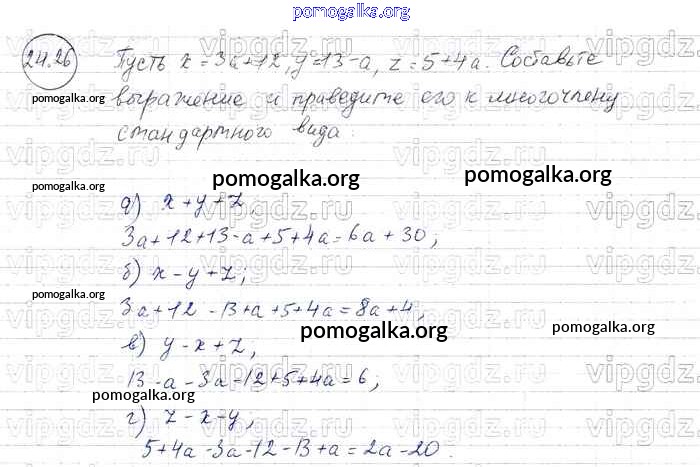 pomogalka.org
24.26
Пусть x = 3a+12, y=13-a, z = 5+4a. Составьте
pomogalka.org
выражение и приведите его к многочлену
стандартного вида:
vipgdz.ru
pomogalka.org
pomogalka.org
pomogalka.org
а) x+y+z,
3a+12+13-a+5+4a=6a+30;
б) x-y+z;
pomogalka.org
3a+12-13+a+5+4a=8a+4,
pomogalka.org
pomogalka.org
в) y-x+z,
13-a-3a-12+5+4a=6;
pomogalka.org
г) z-x-y,
5+4a-3a-12-13+a=2a-20.